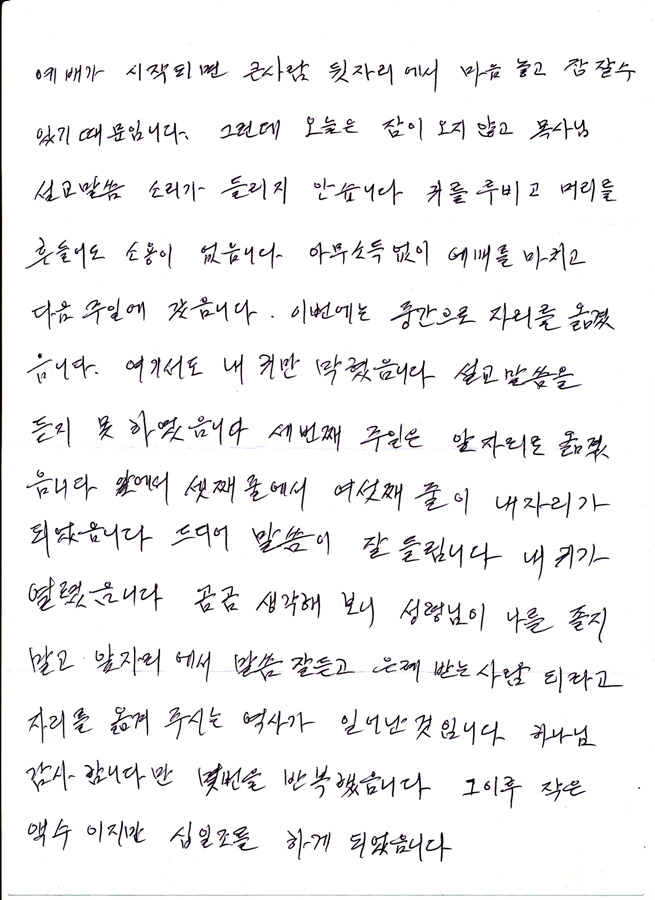 예배가 시작되면 큰사람 뒷자리에서 마음 놓고 잠잘수
있기 때문입니다. 그런데 오늘은 잠이 오지 않고 목사님
설교말씀 소리가 들리지 안습니다 귀를 후비고 머리를
흔들어도 소용이 없읍니다. 아무소득없이 예배를 마치고
다음 주일에 갔읍니다. 이번에는 중간으로 자리를 옮겼
읍니다. 여기서도 내 귀만 막혔읍니다 설교말씀을
듣지 못 하였읍니다 세번째 주일은 앞자리로 옮겼
읍니다 앞에서 셋째줄에서 여섯째 줄이 내자리가
되었읍니다 드디어 말씀이 잘 들립니다 내 귀가
열렸읍니다 곰곰 생각해 보니 성령님이 나를 졸지
말고 앞자리에서 말씀 잘듣고 은혜 받는 사람 되라고
자리를 옮겨 주시는 역사가 일어난 것입니다 하나님
감사합니다만 몇번을 반복했읍니다 그이후 작은
액수 이지만 십일조를 하게 되었읍니다